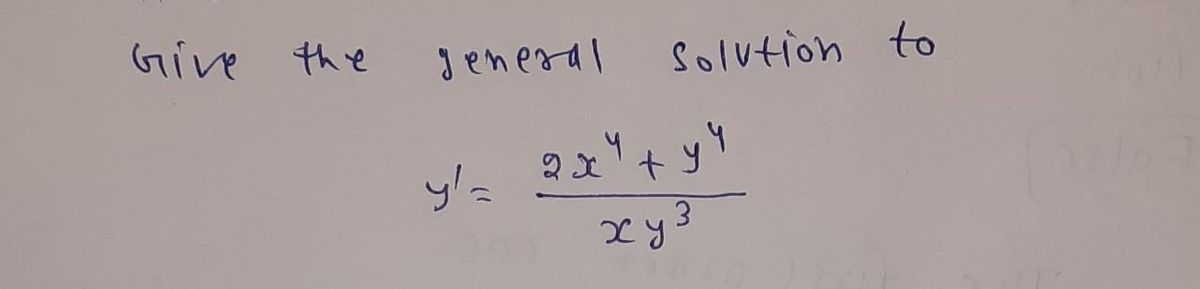 Give the general solution to
y' = (2x⁴ + y⁴) / (xy³)